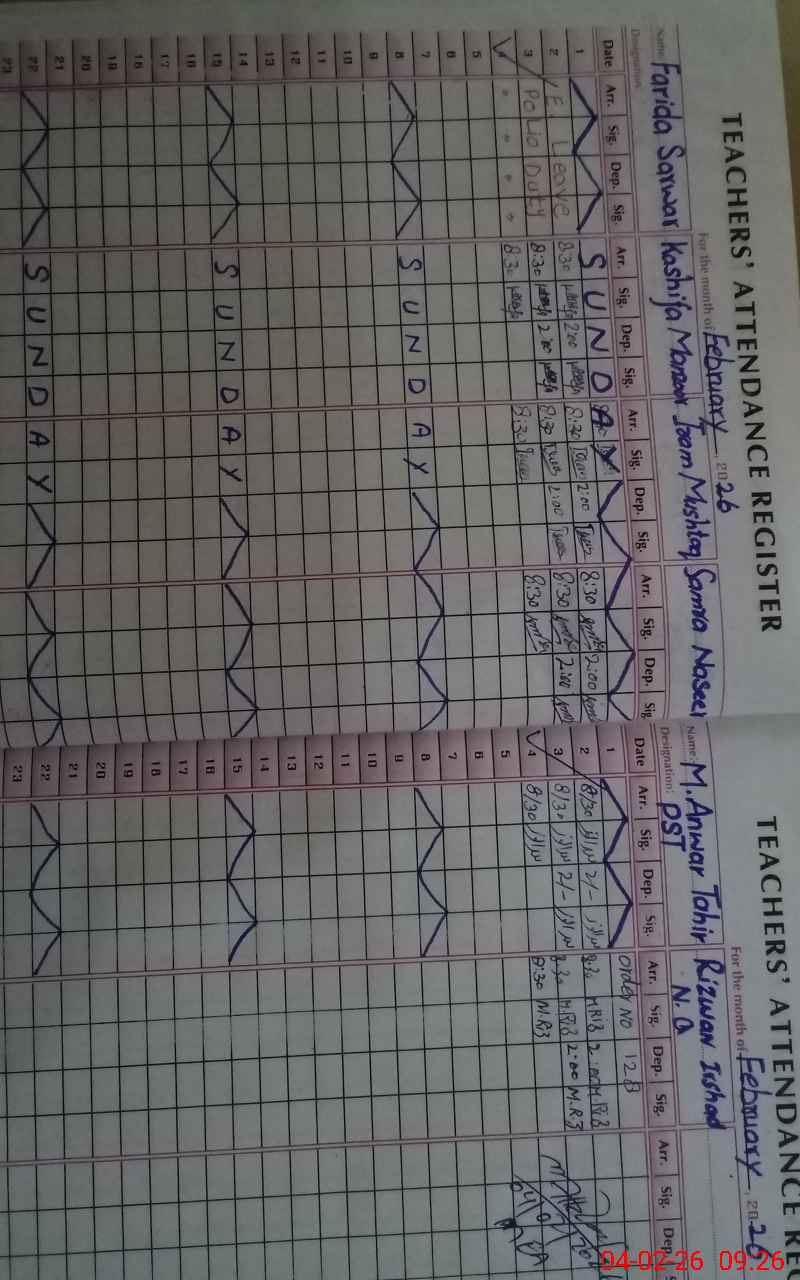 TEACHERS' ATTENDANCE REGISTER
For the month of February, 2026
Name: Farida Sarwar Kashifa Manzoor Iram Mushtaq Samra Naseer
Designation:
Date Arr. Sig. Dep. Sig. Arr. Sig. Dep. Sig. Arr. Sig. Dep. Sig. Arr. Sig. Dep. Sig.
1 SUNDAY
2 E. Leave 8:30 2:00 8:30 2:00 8:30 2:00
3 Polio Duty 8:30 2:00 8:30 2:00 8:30 2:00
4 " " " " 8:30 8:30 8:30
5
6
7
8 SUNDAY
9
10
11
12
13
14
15 SUNDAY
16
17
18
19
20
21
22 SUNDAY
23
TEACHERS' ATTENDANCE REG
For the month of February, 2026
Name: M. Anwar Tahir Rizwan Irshad
Designation: PST N.Q
Date Arr. Sig. Dep. Sig. Arr. Sig. Dep. Sig. Arr. Sig. Dep.
1 order No 128
2 8/30 2/- 8:30 M.Riz 2:00 M.Riz
3 8/30 2/- 8:30 M.Riz 2:00 M.Rz
4 8/30 8:30 M.Rz
5
6
7
8
9
10
11
12
13
14
15
16
17
18
19
20
21
22
23
04-02-26 09.26